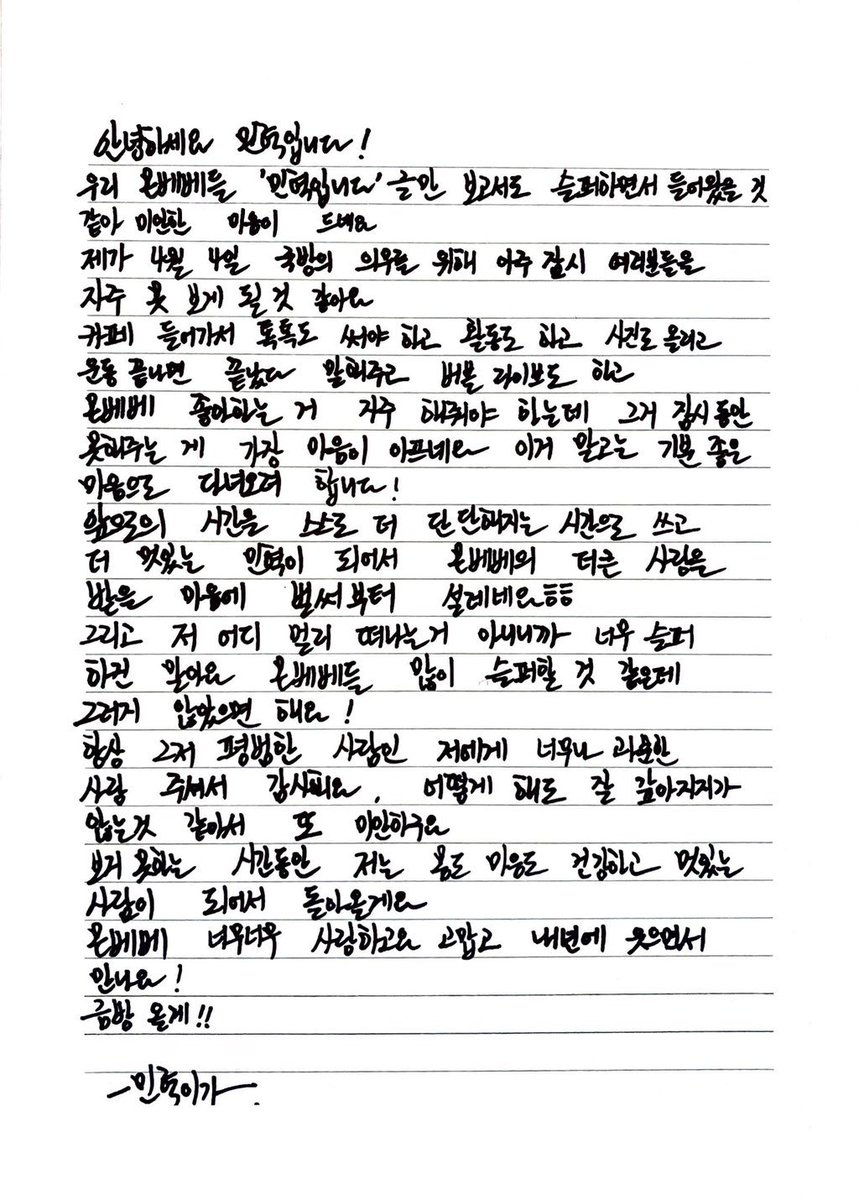 안녕하세요 민혁입니다!
우리 몬베베들 '민혁입니다' 글만 보고서도 슬퍼하면서 들어왔을 것
같아 미안한 마음이 드네요
제가 4월 4일 국방의 의무를 위해 아주 잠시 여러분들을
자주 못 보게 될 것 같아요
카페 들어가서 톡톡도 써야 하고 활동도 하고 사진도 올리고
운동 끝나면 끝났다 말해주고 버블 라이브도 하고
몬베베 좋아하는 거 자주 해줘야 하는데 그거 잠시동안
못해주는 게 가장 마음이 아프네요 이거 말고는 기분 좋은
마음으로 다녀오려 합니다!
앞으로의 시간을 스스로 더 단단해지는 시간으로 쓰고
더 멋있는 민혁이 되어서 몬베베의 더큰 사랑을
받을 마음에 벌써부터 설레네요ㅎㅎ
그리고 저 어디 멀리 떠나는거 아니니까 너무 슬퍼
하진 말아요 몬베베들 많이 슬퍼할 것 같은데
그러지 않았으면 해요!
항상 그저 평범한 사람인 저에게 너무나 과분한
사랑 주어서 감사해요, 어떻게 해도 잘 갚아지지가
않는것 같아서 또 미안하구요
보지 못하는 시간동안 저는 몸도 마음도 건강하고 멋있는
사람이 되어서 돌아올게요
몬베베 너무너무 사랑하고요 고맙고 내년에 웃으면서
만나요!
금방 올게!!
-민혁이가-.